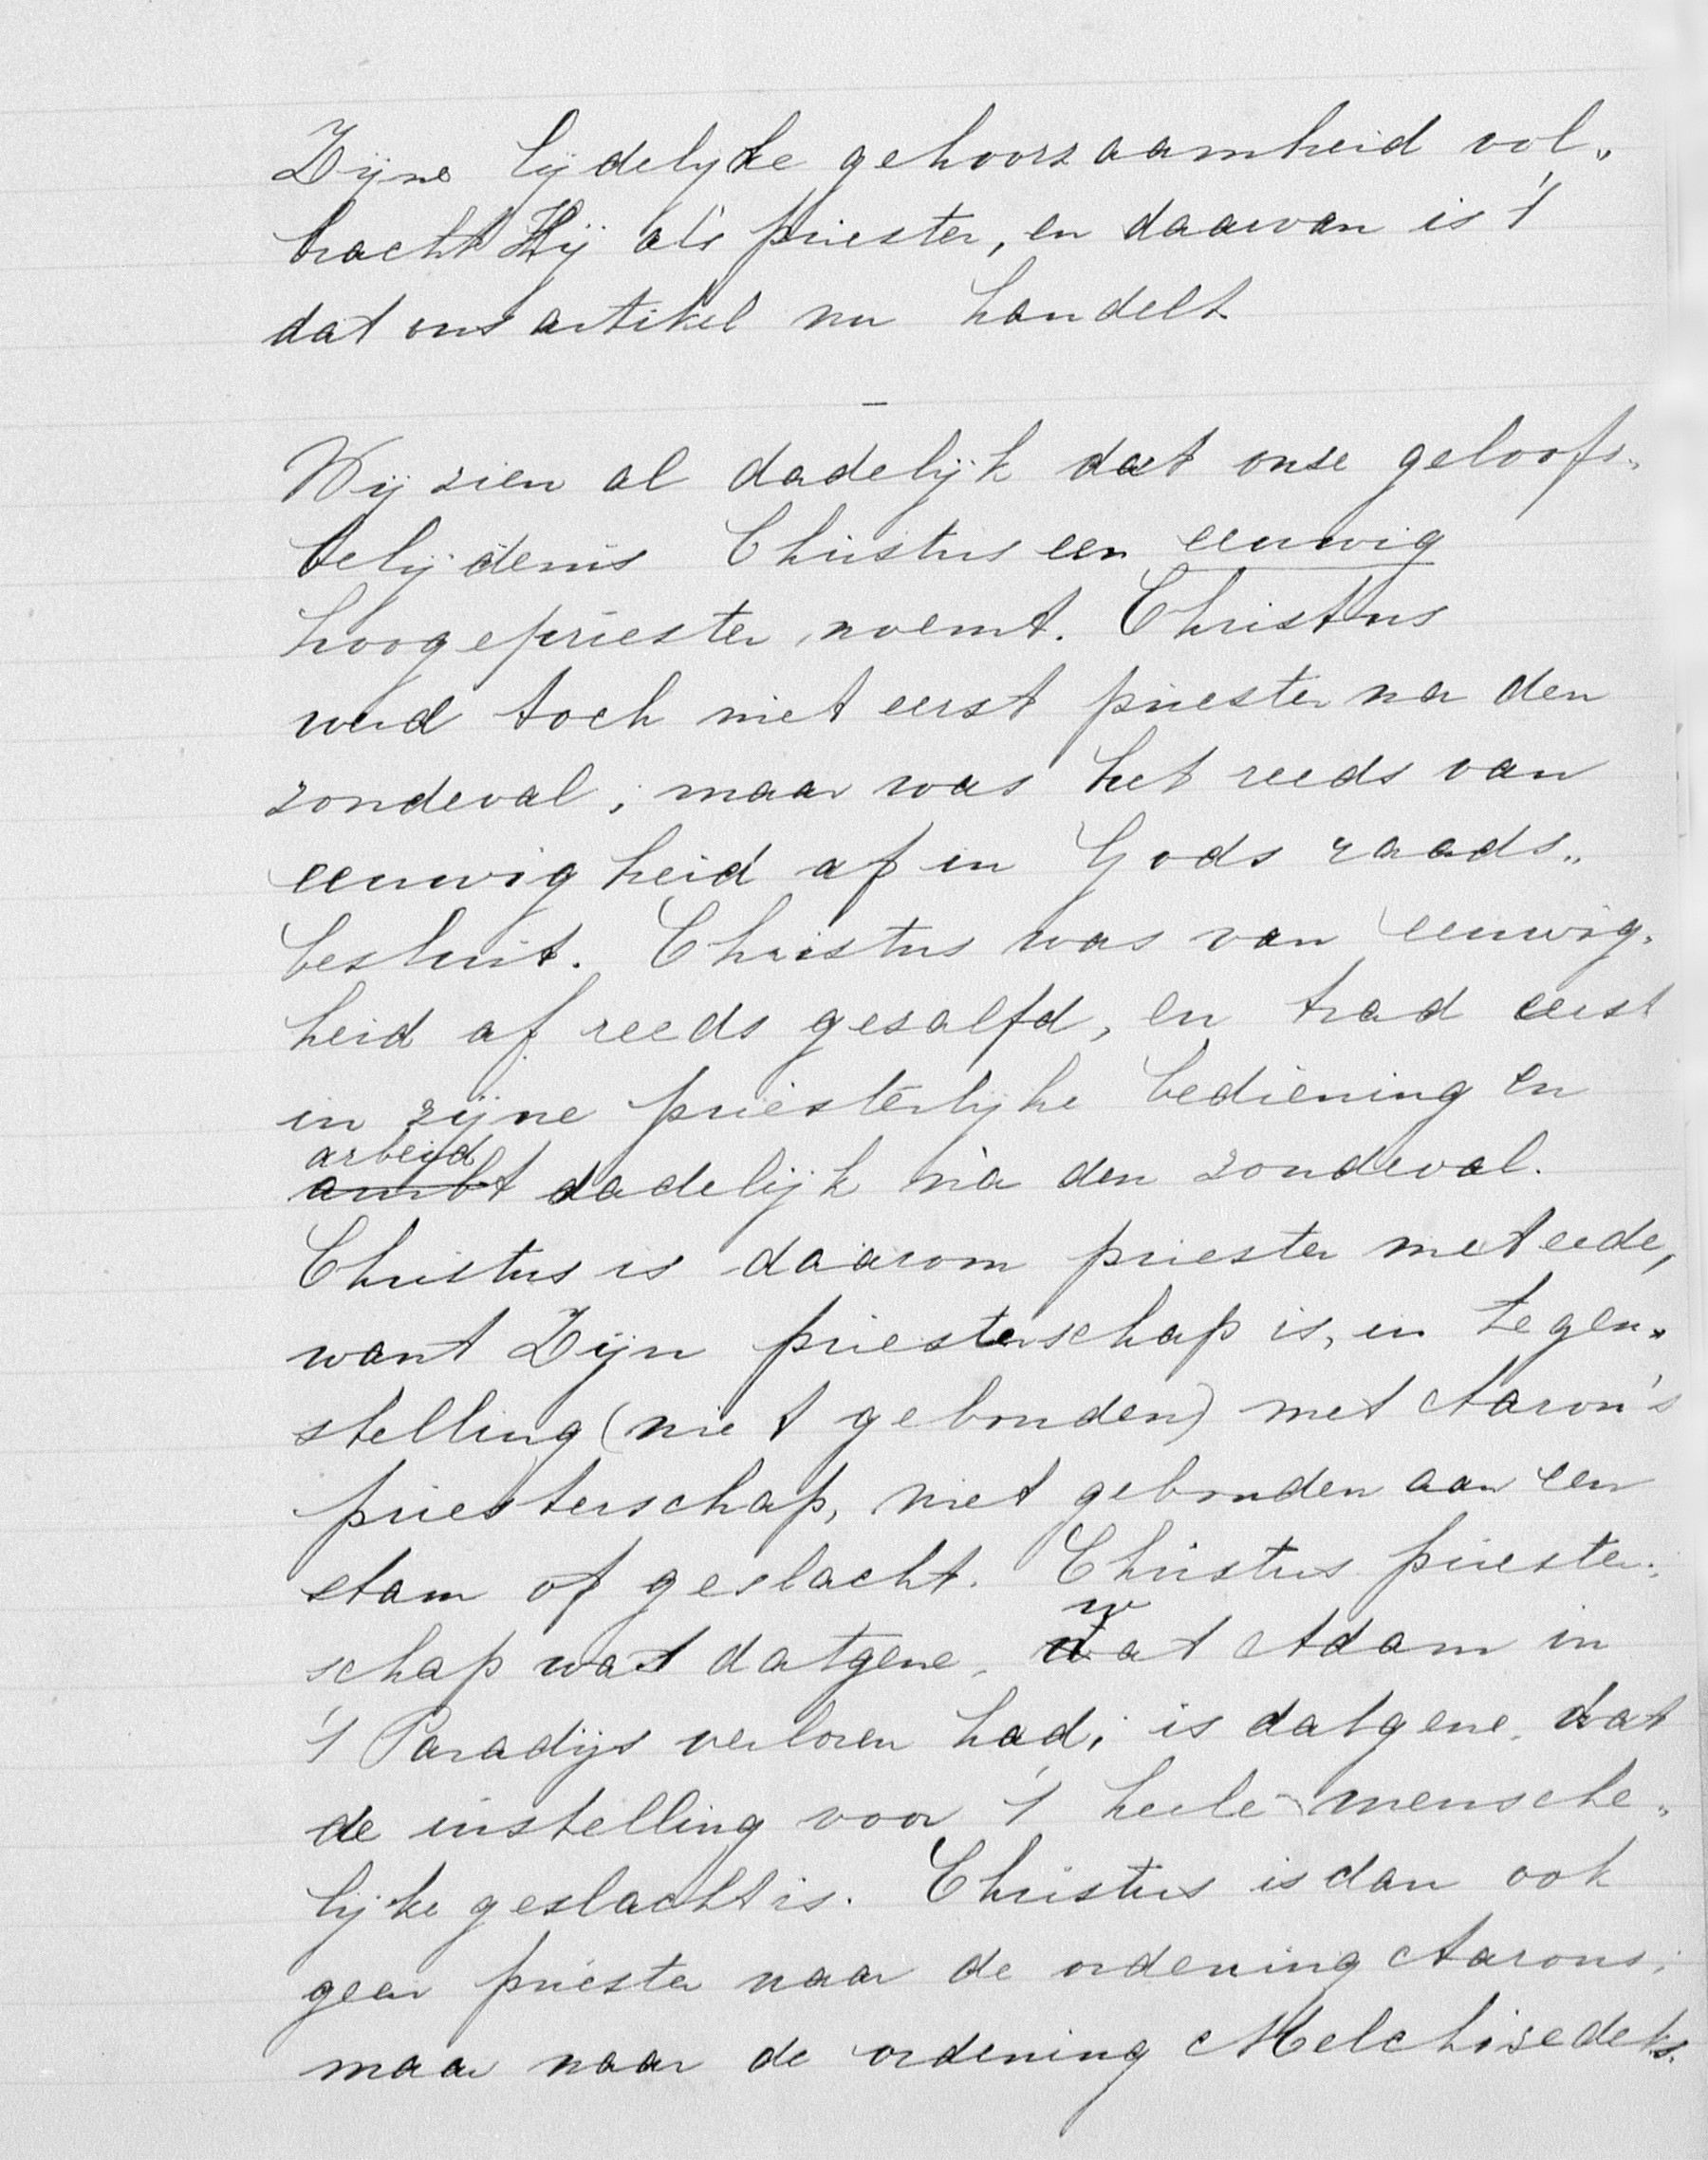 Zijne lijdelijke gehoorzaamheid vol„
bracht Hij als priester, en daarvan is 't
dat ons artikel nu handelt
—
Wij zien al dadelijk dat onze geloofs„
belijdenis Christus een eeuwig
hoogepriester noemt. Christus
werd toch niet eerst priester na den
zondeval; maar was het reeds van
eeuwigheid af in Gods raads„
besluit. Christus was van eeuwig„
heid af reeds gezalfd, en trad eerst
in zijne priesterlijke bediening en
arbeid
ambt dadelijk ná den zondeval.
Christus is daarom priester met eede,
want Zijn priesterschap is, in tegen„
stelling (niet gebonden) met Aaron's
priesterschap, niet gebonden aan een
stam of geslacht. Christus priester„
schap was datgene, wat Adam in
't Paradijs verloren had; is datgene, wat
de instelling voor 't heele mensche„
lijke geslacht is. Christus is dan ook
geen priester naar de ordening Aarons;
maar naar de ordening Melchisedeks.